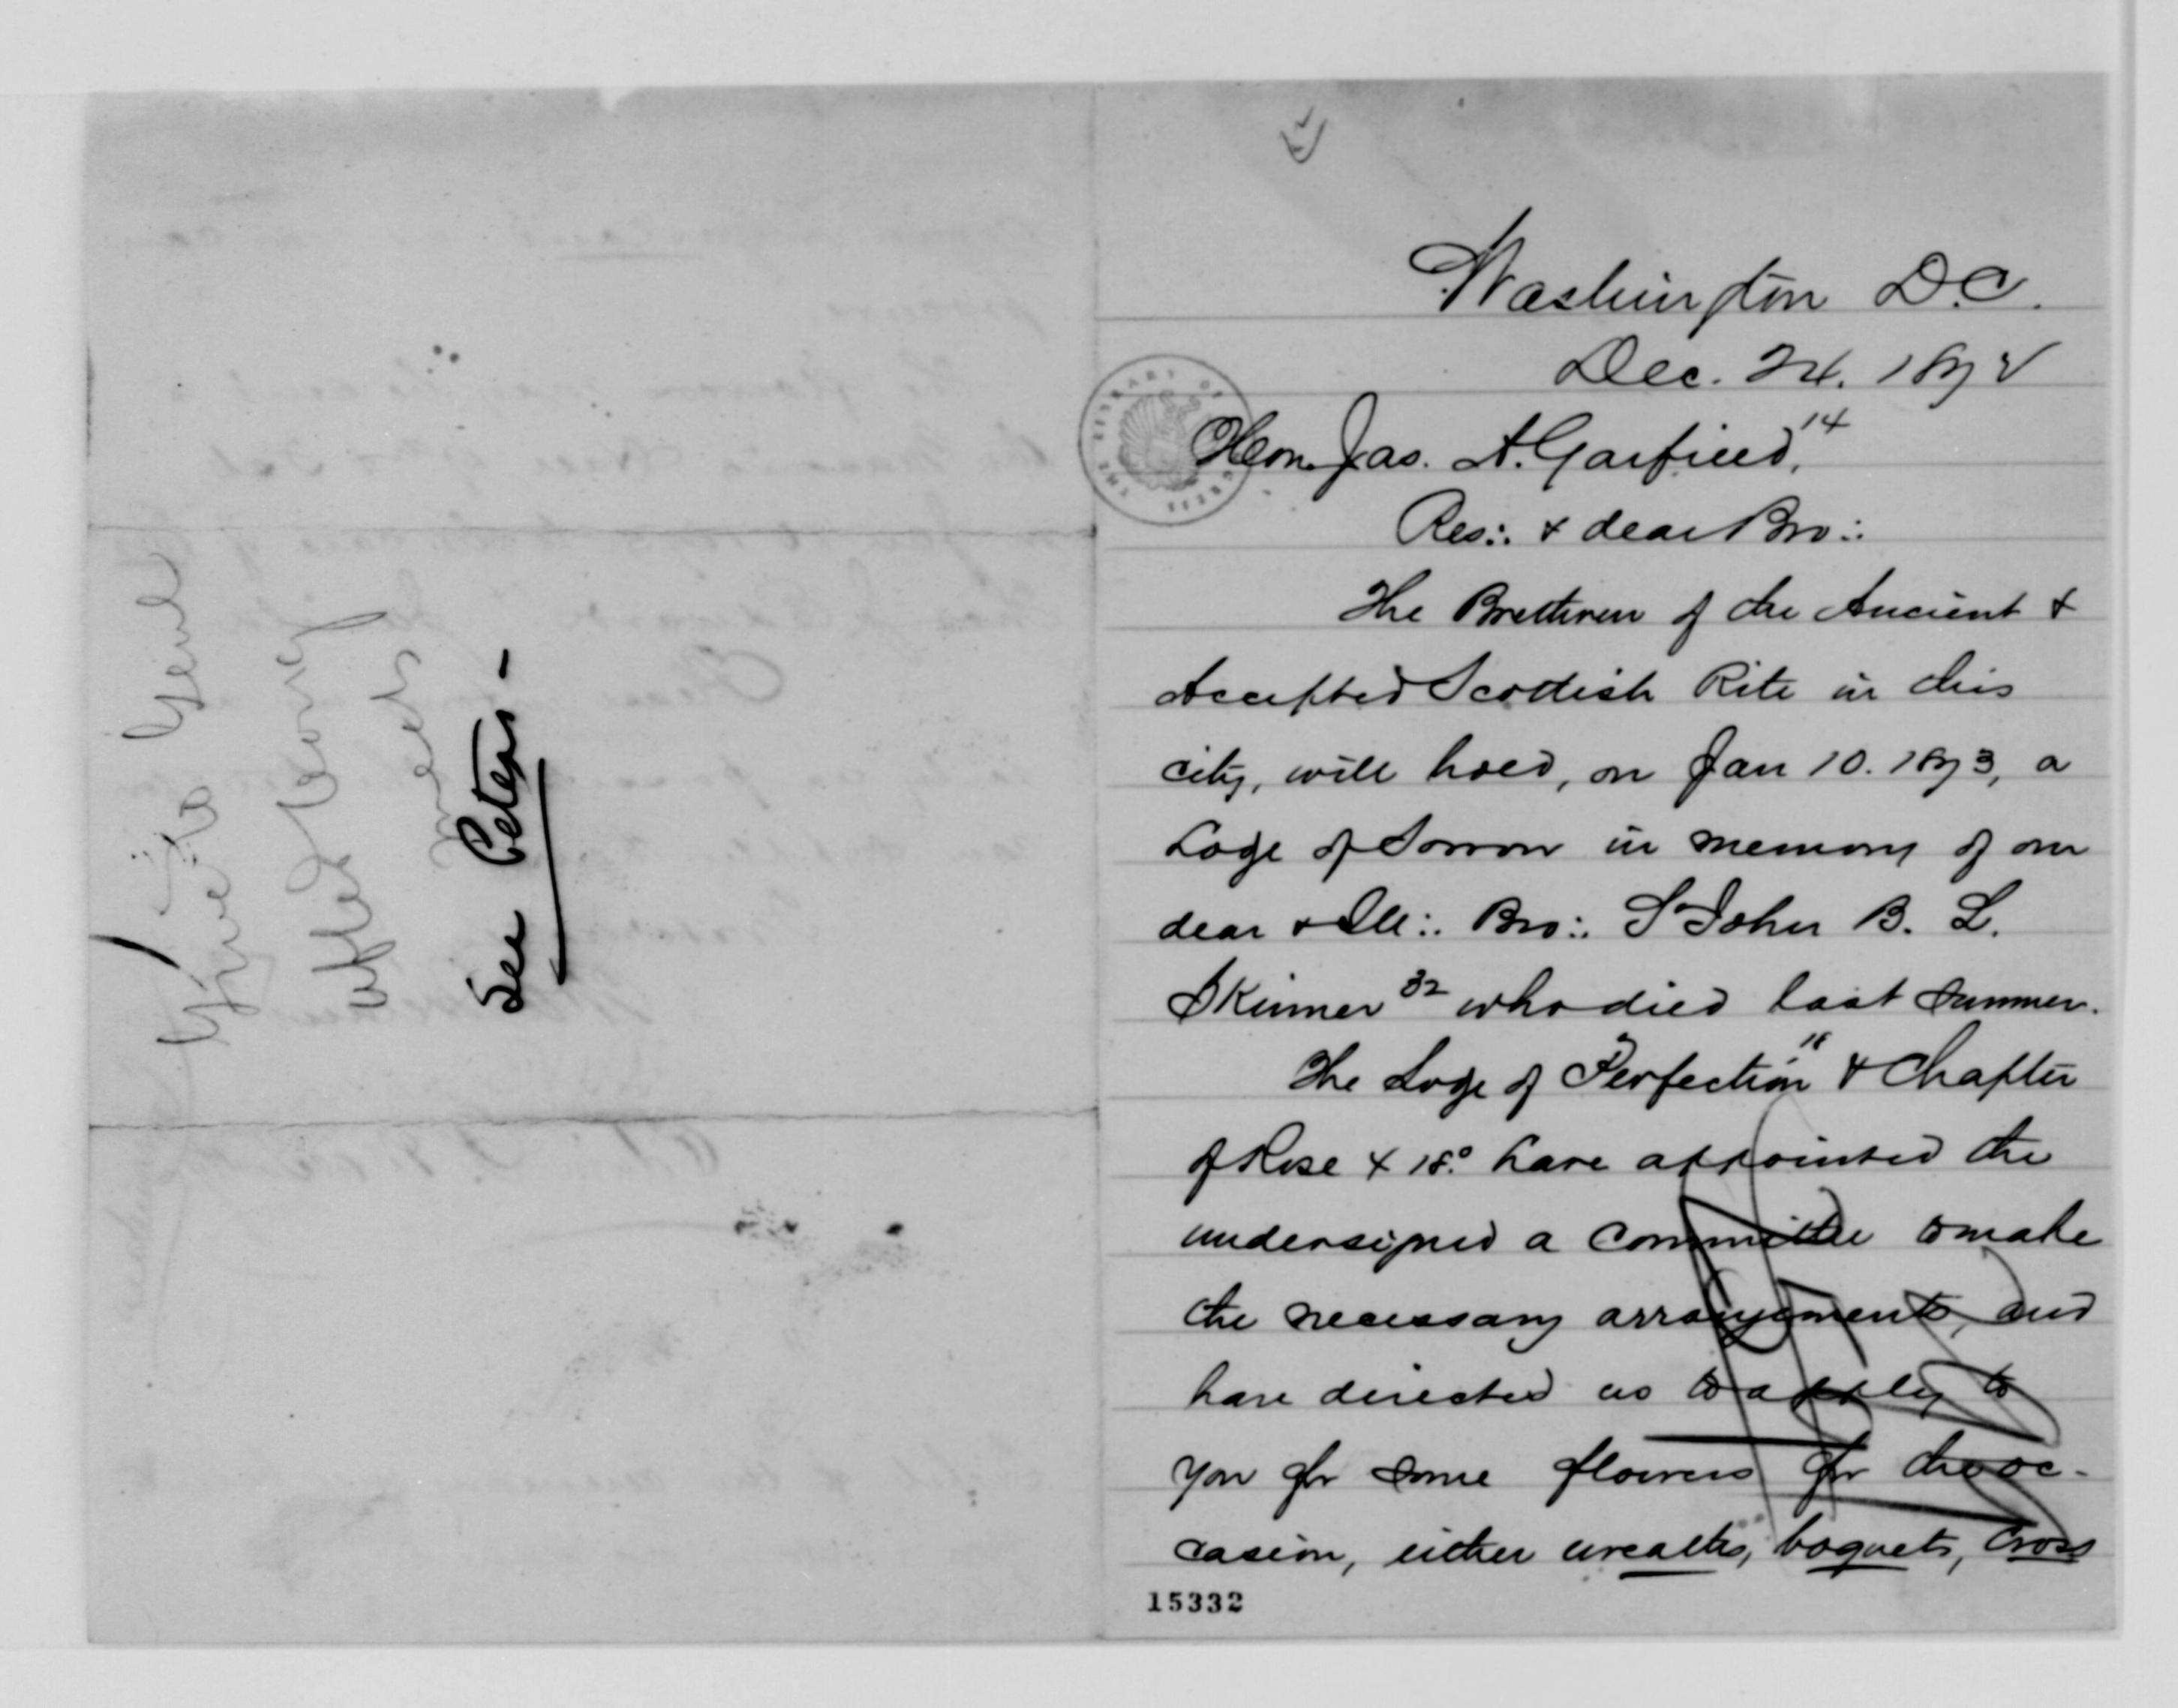 Give to Genl
after Cong
meets
See Peters -
Washington D.C.
Dec. 24. 1872
Hon. Jas. A. Garfield, 14
Res∴ & dear Bro∴
The Brethren of the Ancient &
Accepted Scottish Rite in this
city, will hold, on Jan 10. 1873, a
Loge of Sorrow in memory of our
dear & Ill∴ Bro∴ St John B. L.
Skinner 32 who died last summer.
The Loge of Perfection 18 & Chapter
of Rose + 18° have appointed the
undersigned a committee to make
the necessary arrangements, and
have directed us to apply to
you for some flowers for the oc-
casion, either wreaths, boquets, cross
15332
THE LIBRARY OF CONGRESS